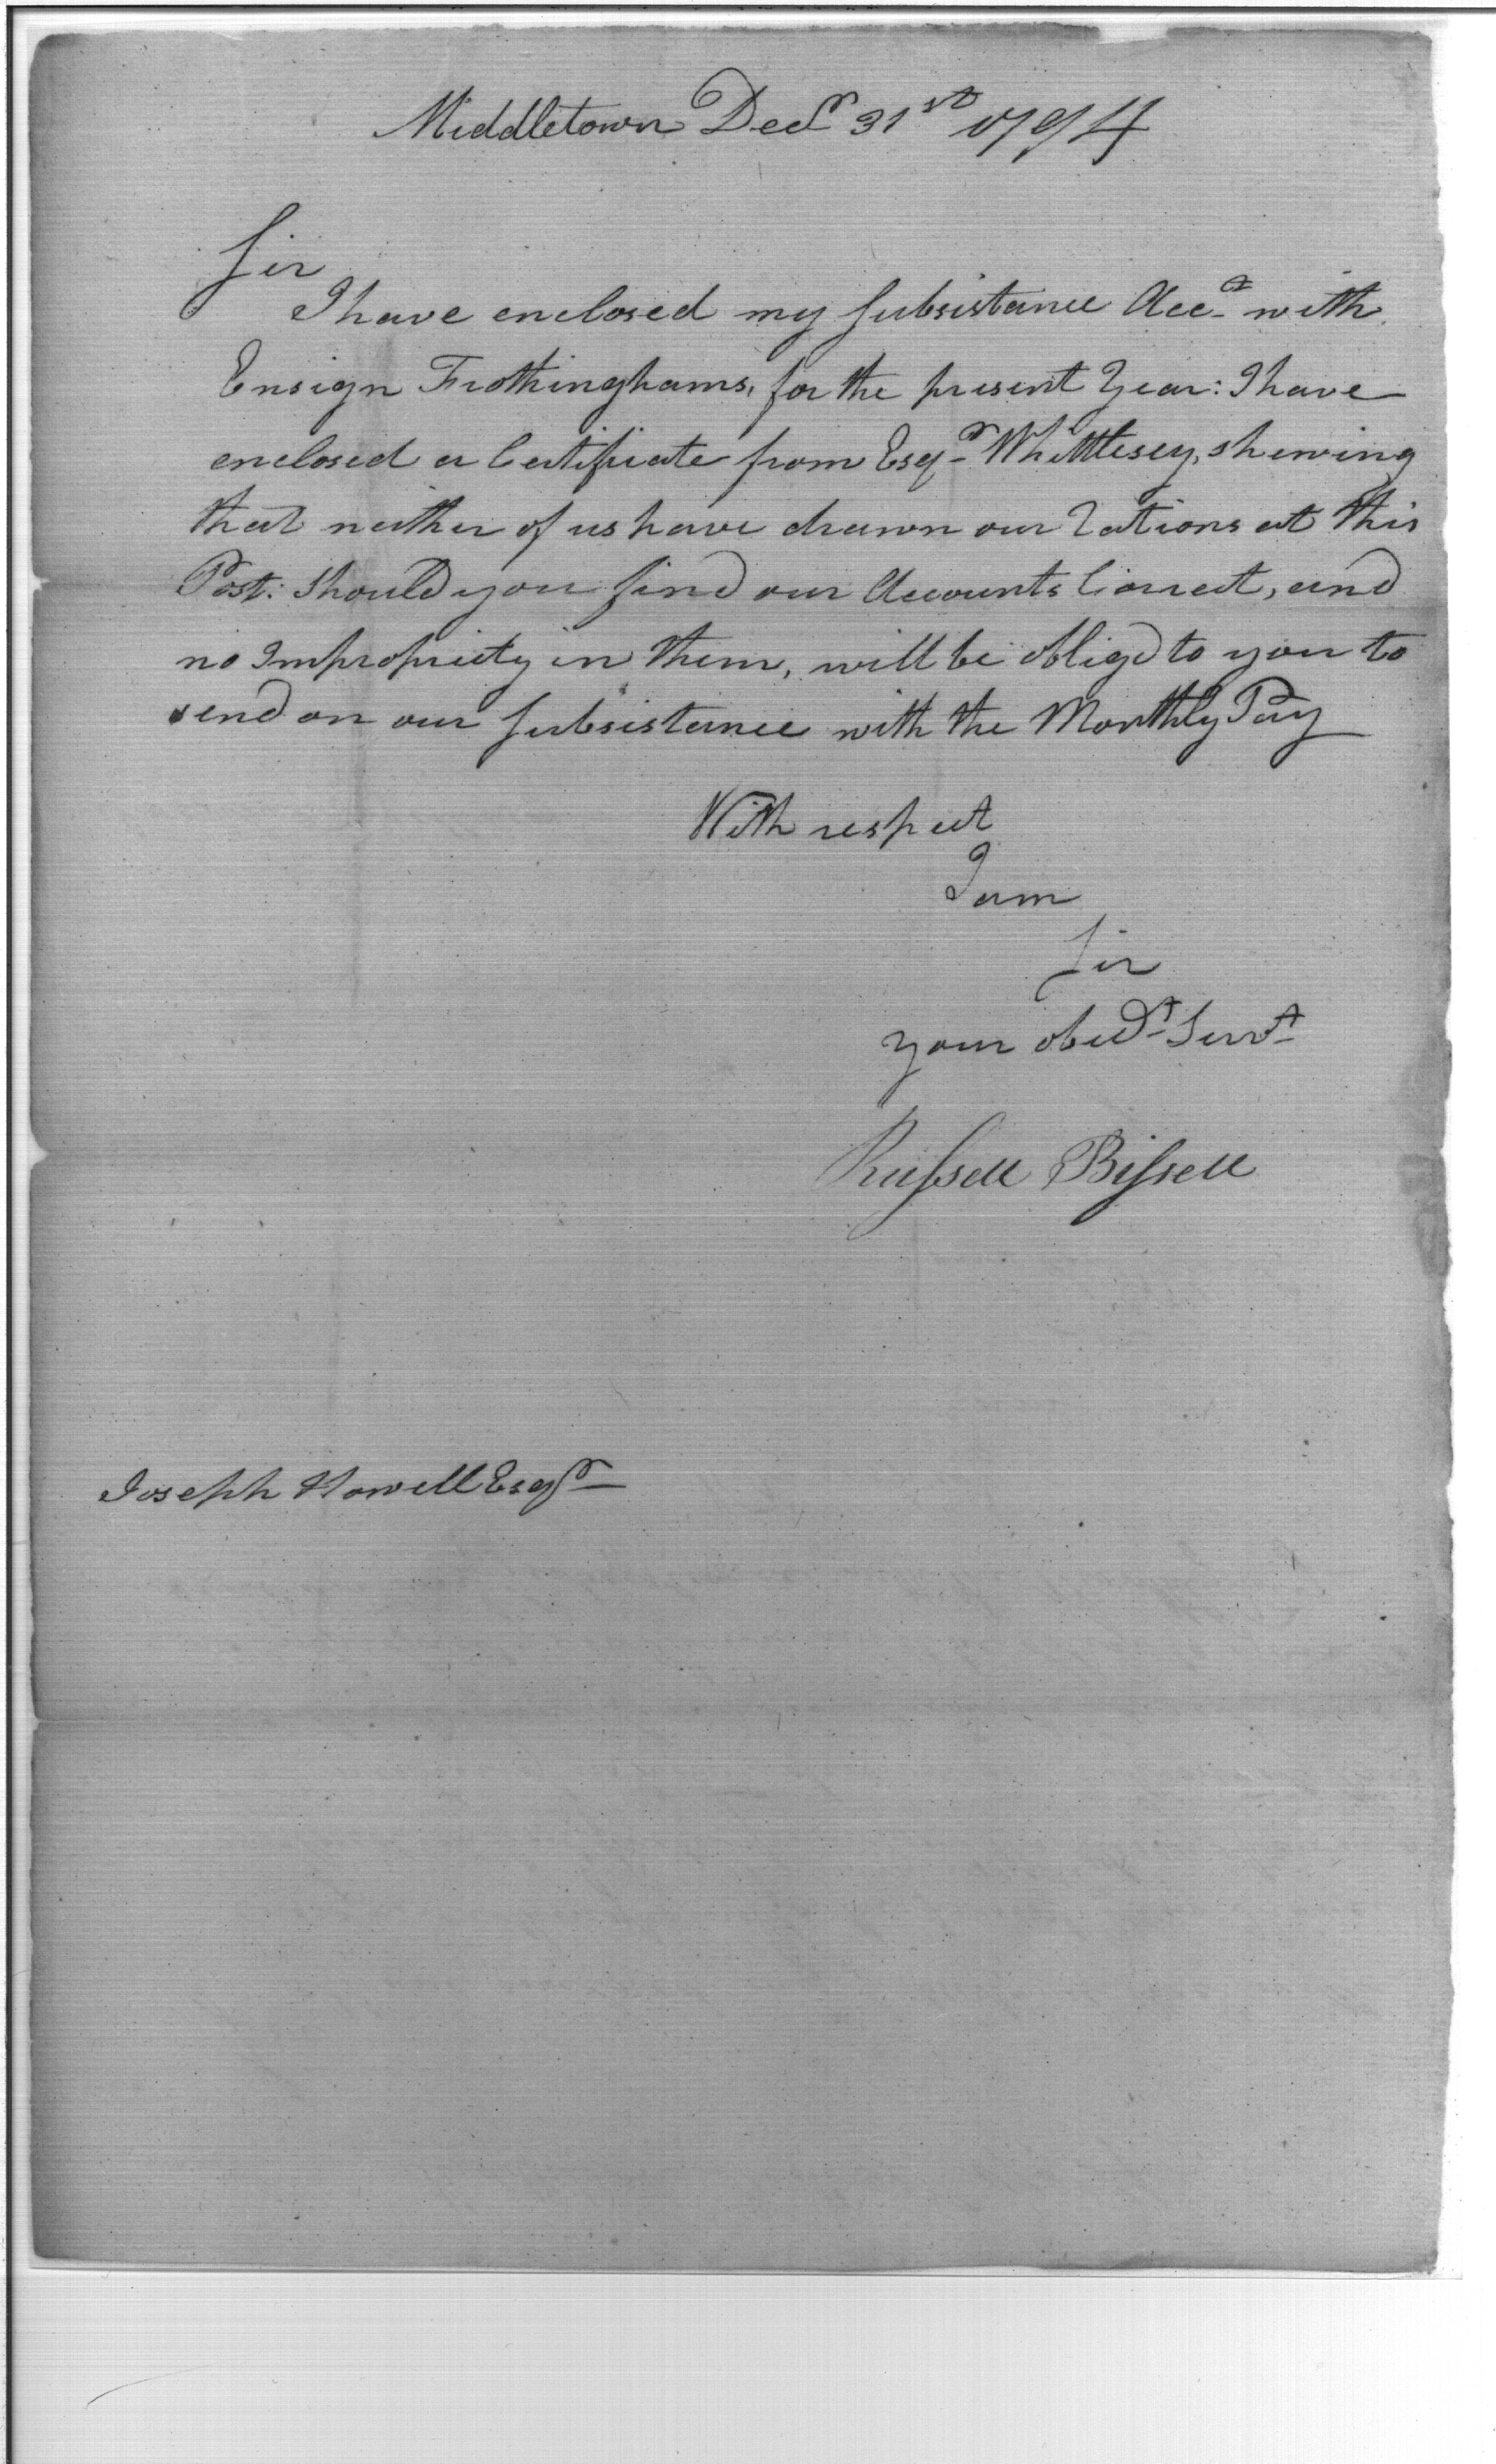 Middletown Decr 31st 1794
Sir
I have enclosed my Subsistance Acct with
Ensign Frothinghams, for the present Year: I have
enclosed a Certificate from Esqr Whittlesey, shewing
that neither of us have drawn our Rations at this
Post: Should you find our Accounts Correct, and
no Impropriety in them, will be obligd to you to
send on our Subsistance with the Monthly Pay
With respect
I am
Sir
your obedt Servt
Russell Bissell
Joseph Howell Esqr